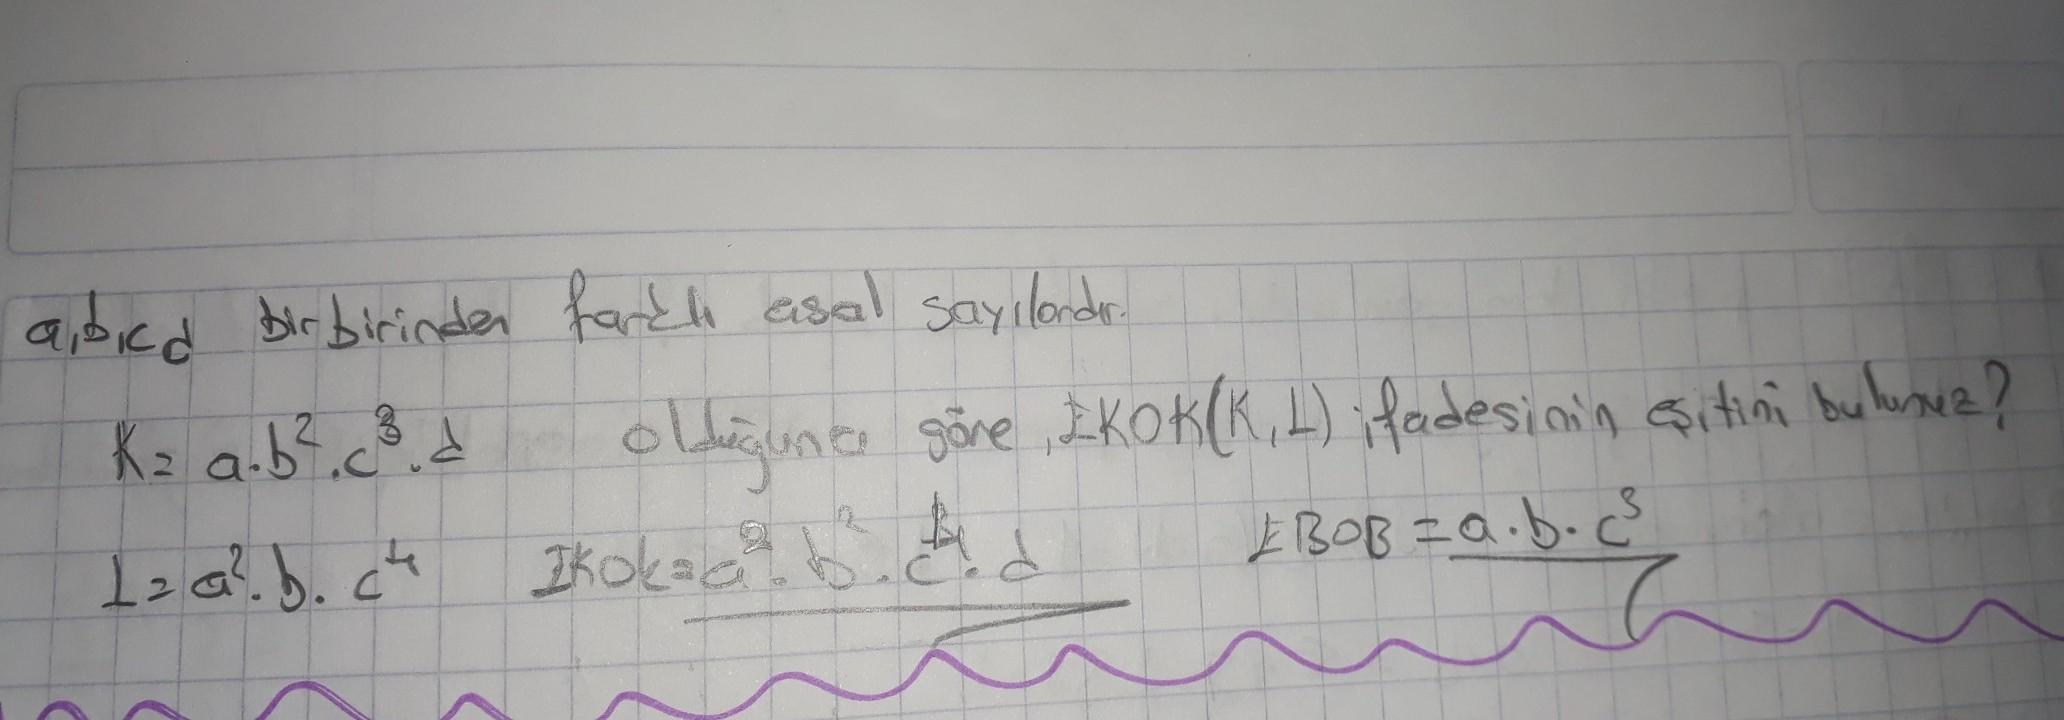 a,b,c,d birbirinden farklı asal sayılardır.
K= a.b².c³.d olduğuna göre, EKOK(K,L) ifadesinin eşitini bulunuz?
L= a².b.c⁴ EKOK=a².b².c⁴.d EBOB=a.b.c³